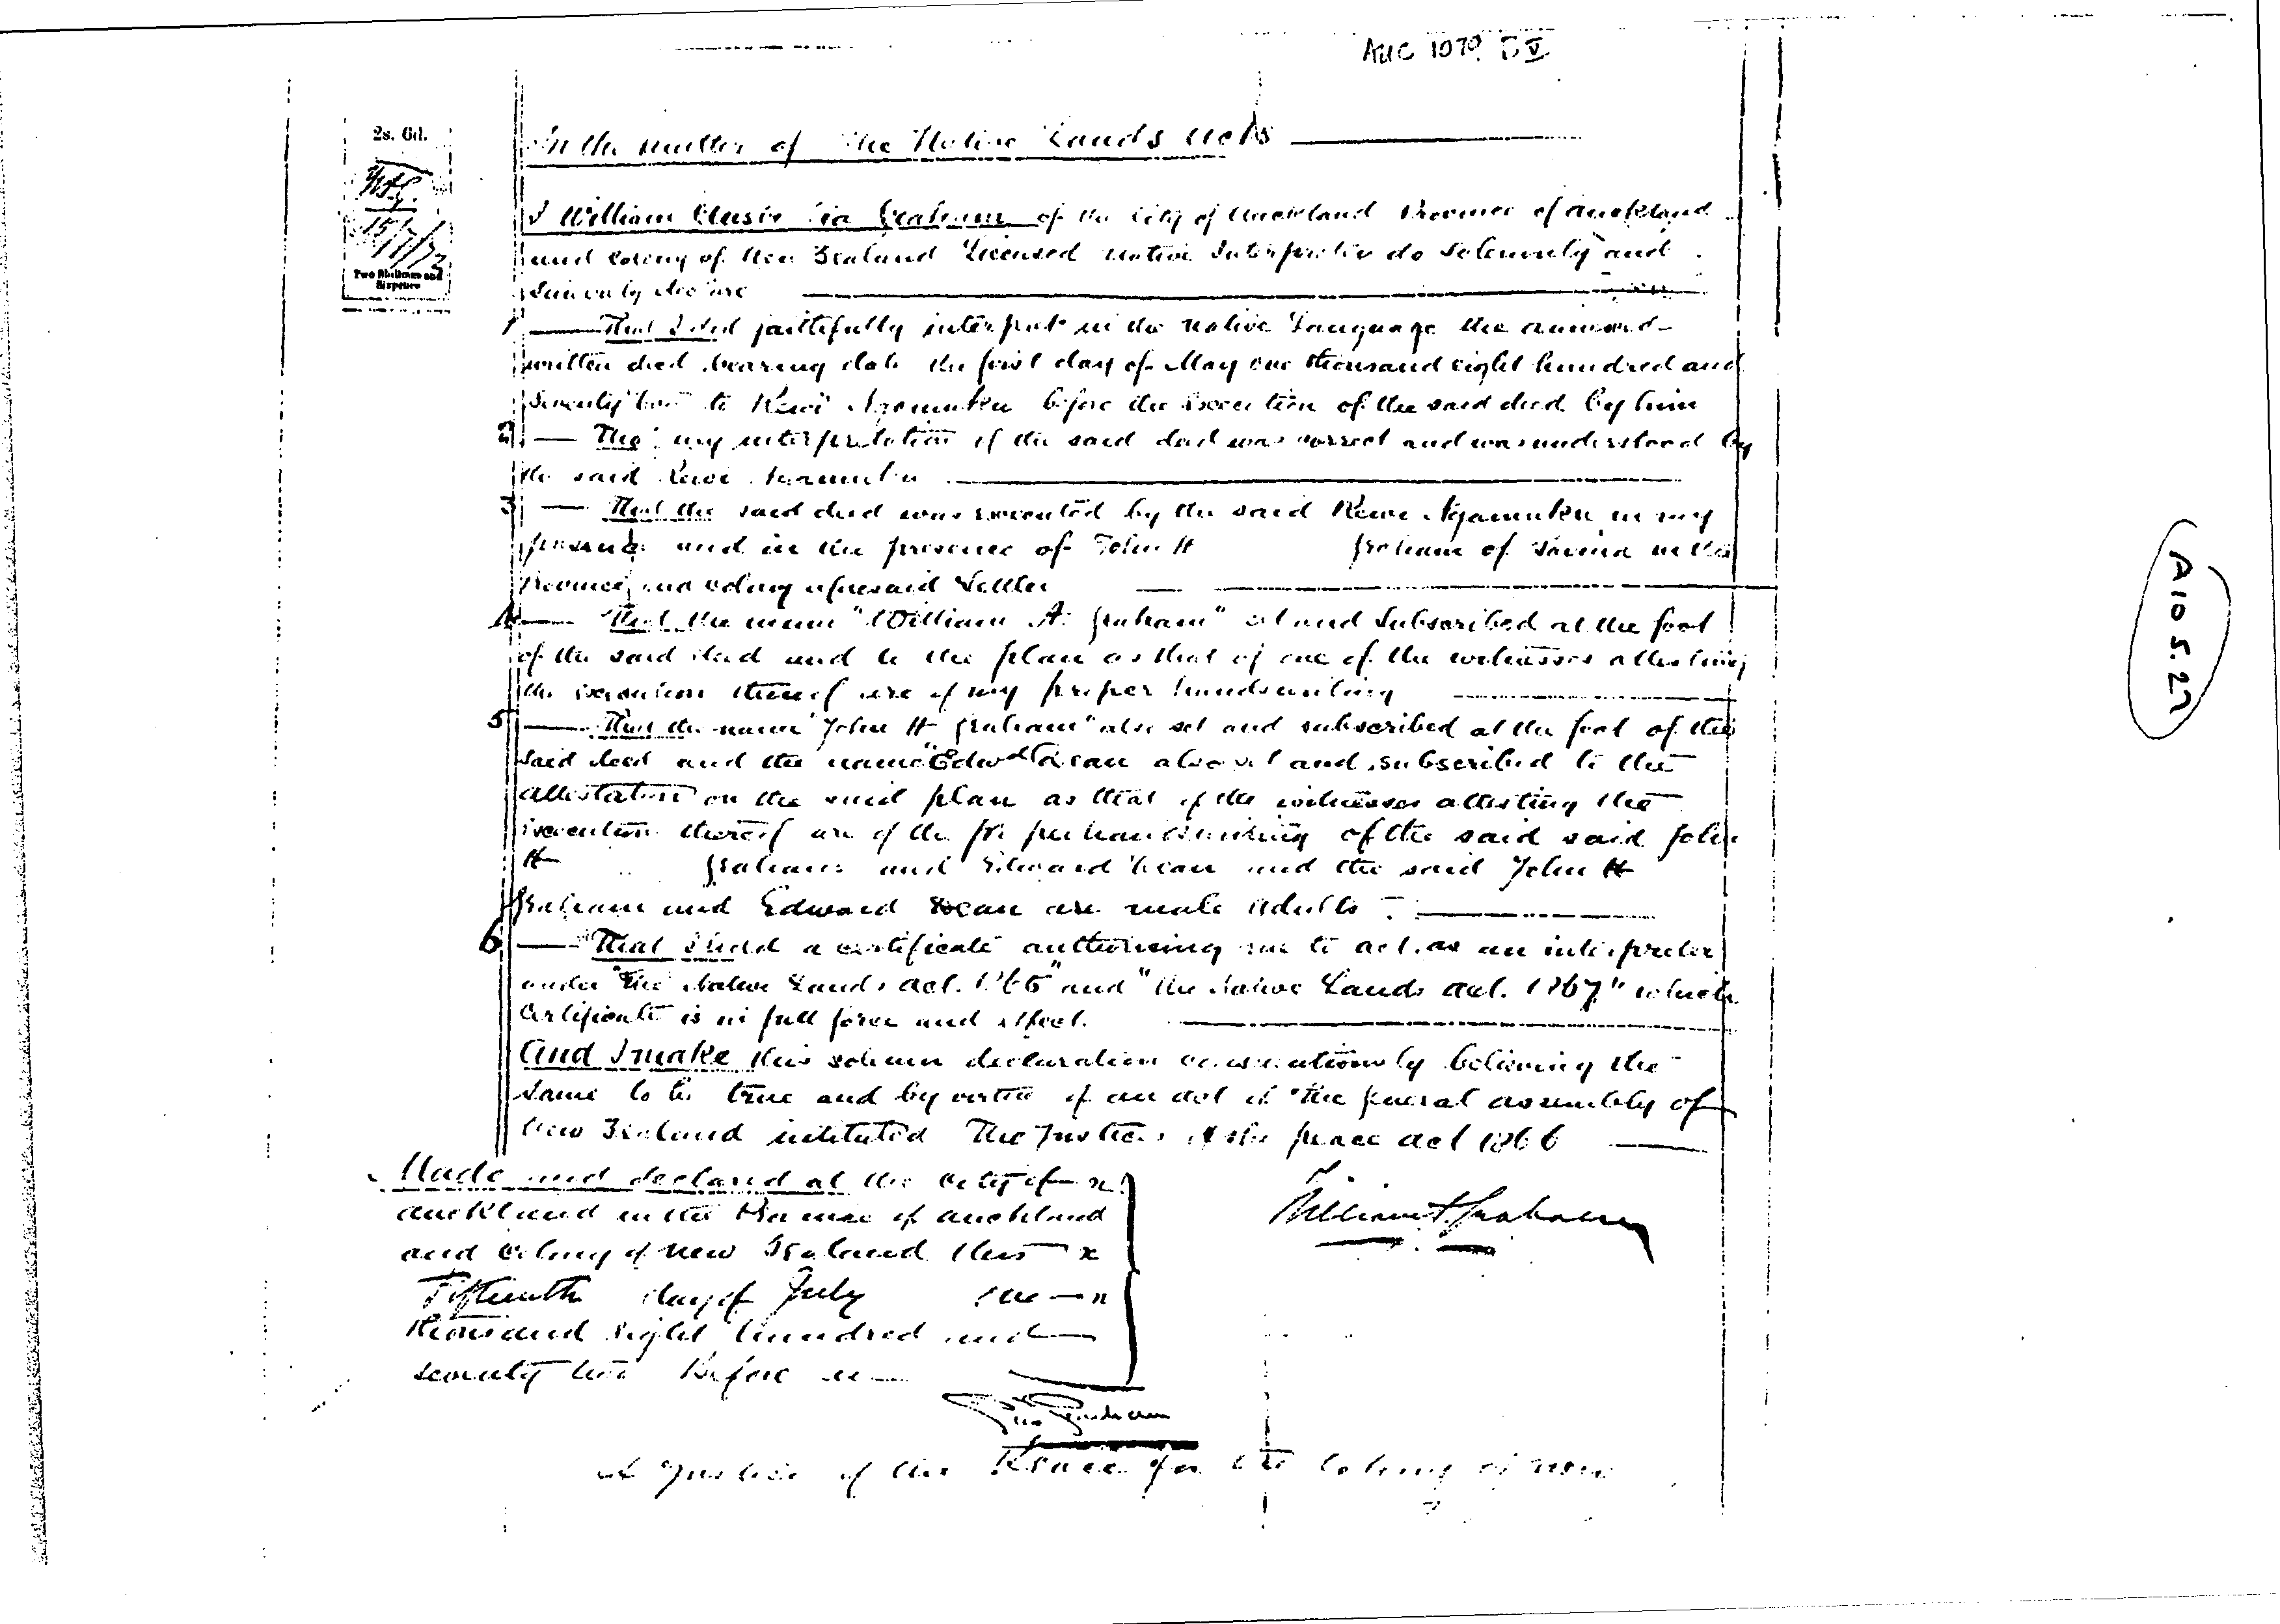 AUC 1079 D V
2s. 6d.
15/7/72
Two Shillings and
Sixpence
In the matter of The Native Lands Acts
I William Graham of the City of Auckland Province of Auckland
and Colony of New Zealand Licensed Native Interpreter do solemnly and
sincerely declare
1 That I did faithfully interpret in the native language the annexed
written deed bearing date the first day of May one thousand eight hundred and
seventy two to Rewi Ngamuka before the execution of the said deed by him
2 That my interpretation of the said deed was correct and was understood by
the said Rewi Ngamuka
3 That the said deed was executed by the said Rewi Ngamuka in my
presence and in the presence of John H Graham of in the
Province and Colony aforesaid Settler
4 That the name "William A. Graham" set and subscribed at the foot
of the said deed and to the plan as that of one of the witnesses attesting
the execution thereof are of my proper handwriting
5 That the name "John H Graham" also set and subscribed at the foot of the
said deed and the name "Edwd Dean also set and subscribed to the
attestation on the said plan as that of the witnesses attesting the
execution thereof are of the proper handwriting of the said said John
H Graham and Edward Dean and the said John H
Graham and Edward Dean are male adults
6 That I hold a certificate authorising me to act as an interpreter
under "The Native Lands Act. 1865" and "the Native Lands Act. 1867" which
certificate is in full force and effect.
And I make this solemn declaration conscientiously believing the
same to be true and by virtue of an act of the General Assembly of
New Zealand intituled The Justices of the peace act 1866
Made and declared at the City of
Auckland in the Province of Auckland
and Colony of New Zealand this
Fifteenth day of July one
thousand eight hundred and
seventy two Before me
William A. Graham
Graham
A Justice of the Peace for the Colony of New
A10 5.27